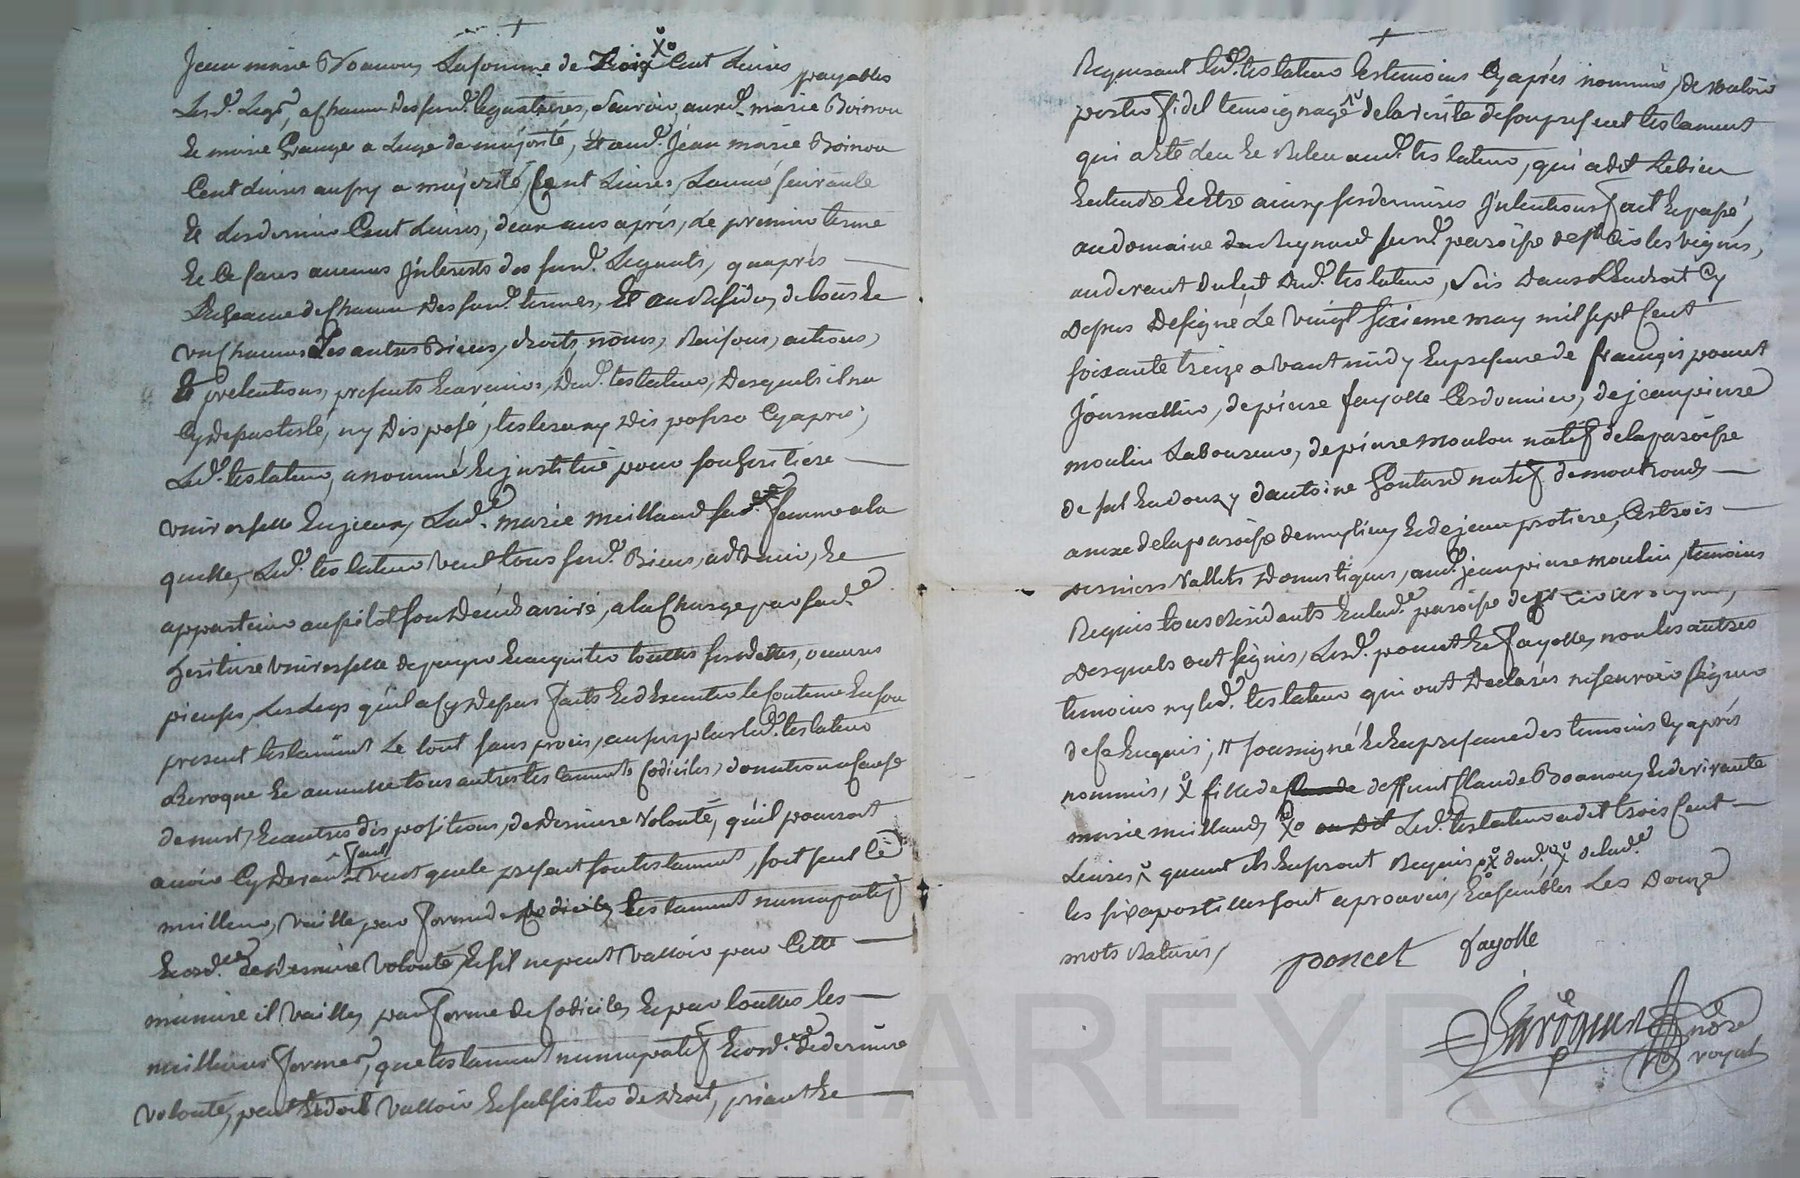 Jean marie Boanou, La somme de Trois Cent Livres payables
Lesd. Legs, a chacun des susd. legataires, Scavoir, ausd. marie Boinou
et marie Grange a L'age de majorité, et aud. Jean marie Boinou
Cent Livres aussy a majorité, Cent Livres L'anné suivante
et Les dernier Cent Livres, deux ans après, le premier terme
et ce sans aucuns Jnterests des susd. Legats, qu'après
L'echeance de chacun desd. susd. termes, Et au Residu, de tous et
un chacuns Les autres Biens, droits, noms, Raisons, actions,
et pretentions, presents et avenir, Dud. testateur, Desquels il n'a
Cy depus testé, ny Disposé, testera ny Disposera Cy apres,
Led. testateur, a nommé et jnstitué pour son heritiere
universelle
Lad. marie meilland sad. femme a la
quelle, Led. testateur veut tous susd. Biens, advenir, et
appartenir aussitôt son Décès arrivé, a la Charge par sad.
heritiere universelle de payer et acquitter touttes ses dettes, oeuvres
pieuses, Les Legs qu'il a Cy Depus faits et d'Executer le Contenu en son
present testament Le tout sans procès, au surplus Led. testateur
Revoque et annulle tous autres testaments Codiciles, donation a Cause
de mort, et autres dispositions, de Derniere Volonté, qu'il pourroit
avoir Cy Devant fait veut que le present son testament, soit seul le
meilleur, vaille par forme de testament nuncupatif
et ord. de Derniere Volonté, et s'il ne peut Valloir par Cette
maniere il Vaille, par forme de Codicile, et par touttes les
meilleures formes, que testament nuncupatif et ord. de derniere
Volonté, peut et doit Valloir et subsister de Droit, priant et
Requerant Led. testateur Les temoins Cy après nommés, de vouloir
porter fidel temoignage de la verité de son present testament
qui a Eté Leu et Releu aud. testateur, qui a dit Le bien
Entendre et Etre ainsy ses dernieres Jntentions fait et passé,
au domaine susd. paroisse de
au devant du Lit Dud. testateur, sis Dans L'Endroit Cy
Depus Designé Le Vingt sixieme may mil sept Cent
soixante treize avant midy En presence de françois poncet
Journallier, de pierre fayolle Cordonnier, de jean pierre
moulin Laboureur, de pierre moulon natif de la paroisse
de d'antoine Gontard natif de montrond
anexe de la paroisse de et de jean protiere, Ces trois
derniers Vallets Domestiques, aud. jean pierre moulin, temoins
Requis tous Residants En lad. paroisse de
Desquels ont signés, Lesd. poncet et fayolle, non les autres
temoins ny led. testateur qui ont Declarés ne scavoir signer
de ce Enquis; soussigné et En presence des temoins Cy après
nommés, X fille de Claude deffunt Claude Boanou, et de vivante
marie meilland, Xo ou Dit Led. testateur a dit trois Cent
Livres, quant ils En seront Requis, dud. de lad.
les six apostilles sont aprouvés, Ensembles Les Douze
mots Raturés,
poncet fayolle
nore
royal